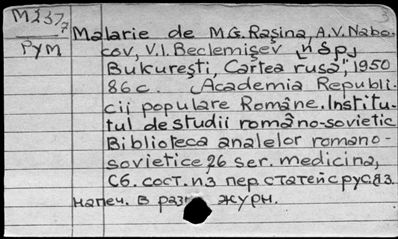 M237
7
3
Рум
Malarie de M.G. Rașina, A.V. Nabo-
cov, V.I. Beclemișev [и др]
București, "Cartea rusă", 1950
86 c. (Academia Republi-
cii populare Române. Institu-
tul de studii româno-sovietic
Biblioteca analelor romano-
sovietice, 26 ser. medicina,
Сб. сост. из пер. статей с рус. яз.
напеч. в журн.